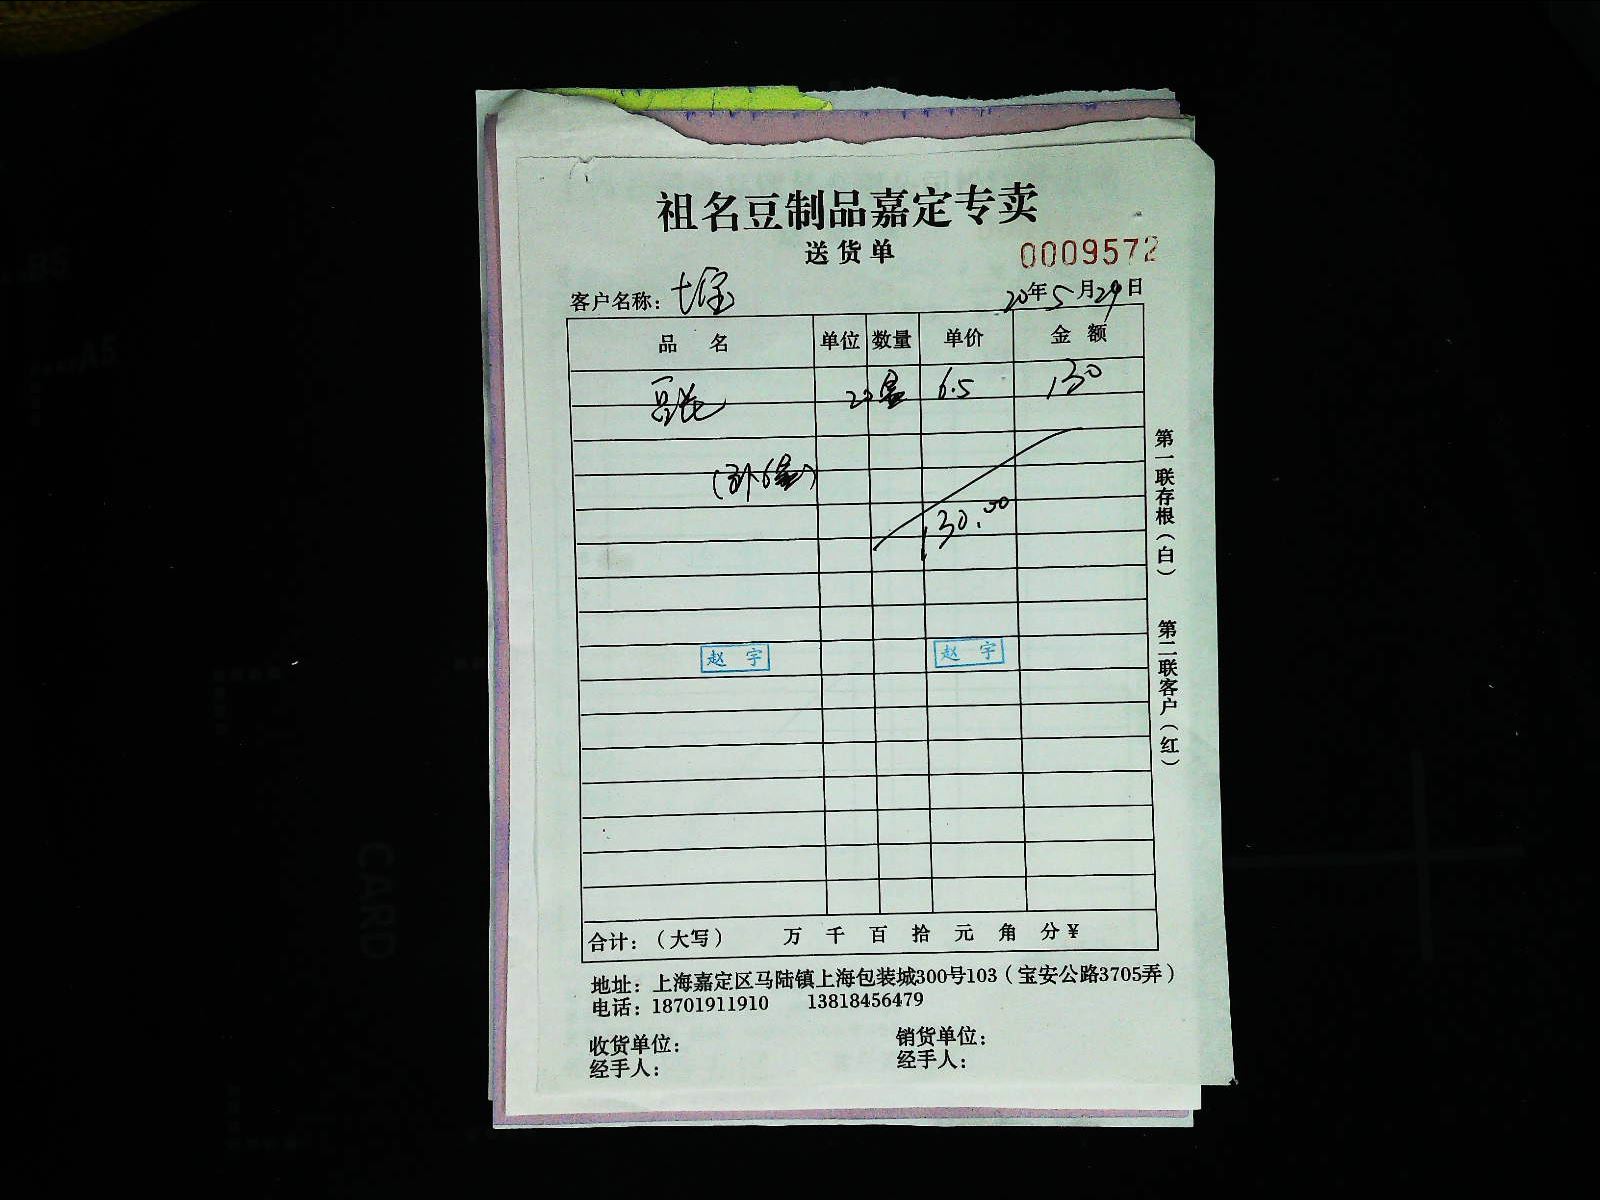 祖名豆制品嘉定专卖
送货单
0009572
客户名称：七宝
20年5月29日
品名 单位 数量 单价 金额
豆花 20盒 6.5 130
(另外6盒)
130.00
赵宇 赵宇
合计：（大写） 万 千 百 拾 元 角 分￥
地址：上海嘉定区马陆镇上海包装城300号103（宝安公路3705弄）
电话：18701911910 13818456479
收货单位： 销货单位：
经手人： 经手人：
第一联存根（白） 第二联客户（红）
CARD
A5
B5